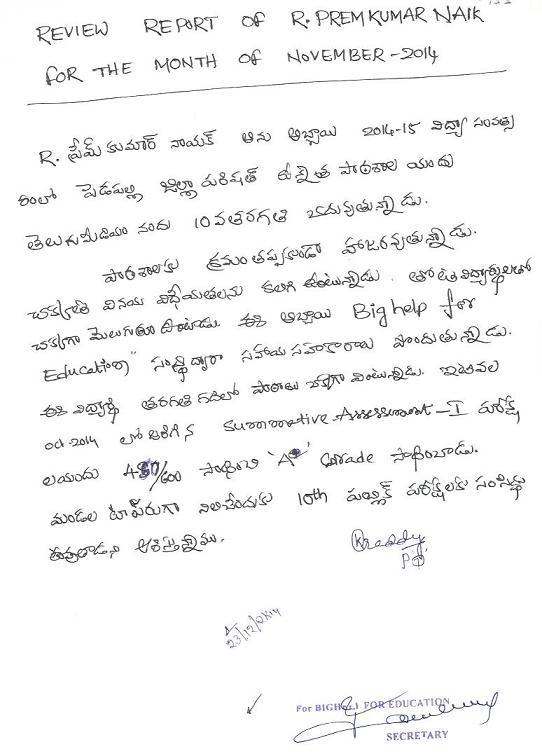 REVIEW REPORT OF R. PREM KUMAR NAIK
FOR THE MONTH OF NOVEMBER - 2014
R. ప్రేమ్ కుమార్ నాయక్ అను అబ్బాయి 2014-15 విద్యా సంవత్స
రంలో పెడపల్లి జిల్లా పరిషత్ ఉన్నత పాఠశాల యందు
తెలుగుమీడియం నందు 10వతరగతి చదువుతున్నాడు.
పాఠశాలకు క్రమంతప్పకుండా హాజరవుతున్నాడు.
చక్కటి వినయ విధేయతలను కలిగి ఉంటున్నాడు. తోటి విద్యార్థులతో
చక్కగా మెలుగుతూ ఉంటాడు. ఈ అబ్బాయి Big help for
Education" సంస్థ ద్వారా సహాయ సహకారాలు పొందుతున్నాడు.
ఈ విద్యార్థి తరగతి గదిలో పాఠాలు చక్కగా వింటున్నాడు. ఇటీవల
oct-2014 లో జరిగిన Summative Assessment-I పరీక్ష
లయందు /600 సాధించి 'A' Grade సాధించాడు.
మండల టాపరుగా నిలిచేందుకు 10th పబ్లిక్ పరీక్షలకు సంసిద్ధు
డవుతాడని ఆశిస్తున్నాము.
KReddy
23/12/2K14
For BIGHELP FOR EDUCATION
SECRETARY